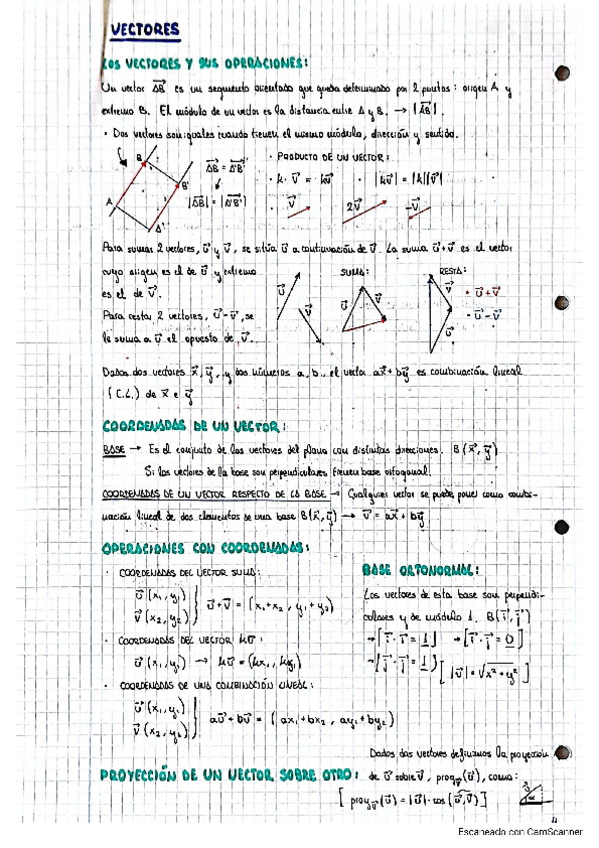 VECTORES
LOS VECTORES Y SUS OPERACIONES:
Un vector AB⃗ es un segmento orientado que queda determinado por 2 puntos: origen A y
extremo B. El módulo de un vector es la distancia entre A y B. → |AB⃗|.
· Dos vectores son iguales cuando tienen el mismo módulo, dirección y sentido.
A B A' B'
AB⃗ = A'B'⃗
|AB⃗| = |A'B'⃗|
· PRODUCTO DE UN VECTOR:
· k · v⃗ = kv⃗ · |kv⃗| = |k||v⃗|
· v⃗ 2v⃗ -v⃗
Para sumar 2 vectores, u⃗ y v⃗, se sitúa u⃗ a continuación de v⃗. La suma u⃗+v⃗ es el vector
cuyo origen es el de u⃗ y extremo
es el de v⃗.
Para restar 2 vectores, u⃗-v⃗, se
le suma a u⃗ el opuesto de v⃗.
u⃗ v⃗
SUMA:
u⃗ v⃗
RESTA:
v⃗ u⃗
· u⃗+v⃗
· u⃗-v⃗
Dados dos vectores x⃗, y⃗, y dos números a, b, el vector ax⃗+by⃗ es combinación lineal
(C.L.) de x⃗ e y⃗
COORDENADAS DE UN VECTOR:
BASE → Es el conjunto de los vectores del plano con distintas direcciones. B(x⃗, y⃗)
Si los vectores de la base son perpendiculares tienen base ortogonal.
COORDENADAS DE UN VECTOR RESPECTO DE LA BASE → Cualquier vector se puede poner como combi-
nación lineal de dos elementos de una base B(x⃗, y⃗) → v⃗ = ax⃗ + by⃗
OPERACIONES CON COORDENADAS:
· COORDENADAS DEL VECTOR SUMA:
u⃗ (x₁, y₁)
v⃗ (x₂, y₂) } u⃗+v⃗ = (x₁+x₂, y₁+y₂)
· COORDENADAS DEL VECTOR ku⃗:
u⃗ (x₁, y₁) → ku⃗ = (kx₁, ky₁)
· COORDENADAS DE UNA COMBINACIÓN LINEAL:
u⃗ (x₁, y₁)
v⃗ (x₂, y₂) } au⃗+bv⃗ = (ax₁+bx₂, ay₁+by₂)
BASE ORTONORMAL:
Los vectores de esta base son perpendi-
culares y de módulo 1. B(i⃗, j⃗)
→ [i⃗ · i⃗ = 1] → [i⃗ · j⃗ = 0]
→ [j⃗ · j⃗ = 1] [|v⃗| = √x²+y²]
Dados dos vectores definimos la proyección
PROYECCIÓN DE UN VECTOR SOBRE OTRO: de u⃗ sobre v⃗, proy v⃗(u⃗), como:
[proy v⃗ (u⃗) = |u⃗| · cos (u⃗,v⃗)]
Escaneado con CamScanner